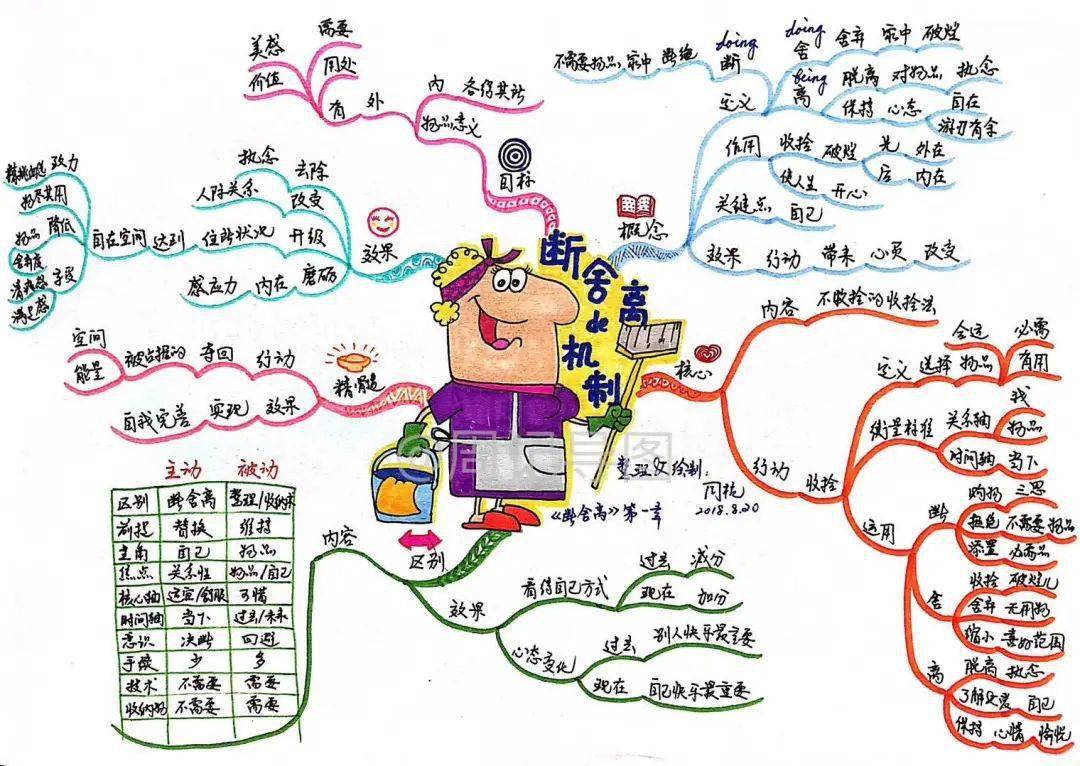 断舍离de机制
整理及绘制:
周桄
2018.8.20
《断舍离》第一章
概念
定义
doing
断
断绝 家中 不需要物品
doing
舍
舍弃 家中 破烂
being
离
脱离 对物品 执念
保持 心态
自在
游刃有余
作用
收拾 破烂
先 外在
后 内在
使人生 开心
关键点 自己
效果 行动 带来 心灵 改变
核心
内容 不收拾的收拾法
行动
收拾
定义 选择 物品
合适 必需
有用
衡量标准
关系轴
我
物品
时间轴 当下
运用
断
购物 三思
拒绝 不需要物品
添置 必需品
舍
收拾 破烂儿
舍弃 无用物
缩小 喜好范围
离
脱离 执念
了解处置 自己
保持 心情 愉悦
区别
效果
看待自己方式
过去 减分
现在 加分
心态变化
过去 别人快乐最重要
现在 自己快乐最重要
内容
主动 被动
区别 断舍离 整理/收纳术
前提 替换 维持
主角 自己 物品
焦点 关系性 物品/自己
核心轴 适宜/舒服 可惜
时间轴 当下 过去/未来
意识 决断 回避
手续 少 多
技术 不需要 需要
收纳物 不需要 需要
精髓
行动
夺回
被占据的
空间
能量
效果
实现
自我完善
效果
去除
执念
改变
人际关系
升级
住所状况
达到
自在空间
精挑细选 致力
物尽其用
物品 降低
舍弃度
清爽感 享受
满足感
磨砺
内在
感应力
目标
内 各得其所
物品意义
外
有
需要
用处
美感
价值